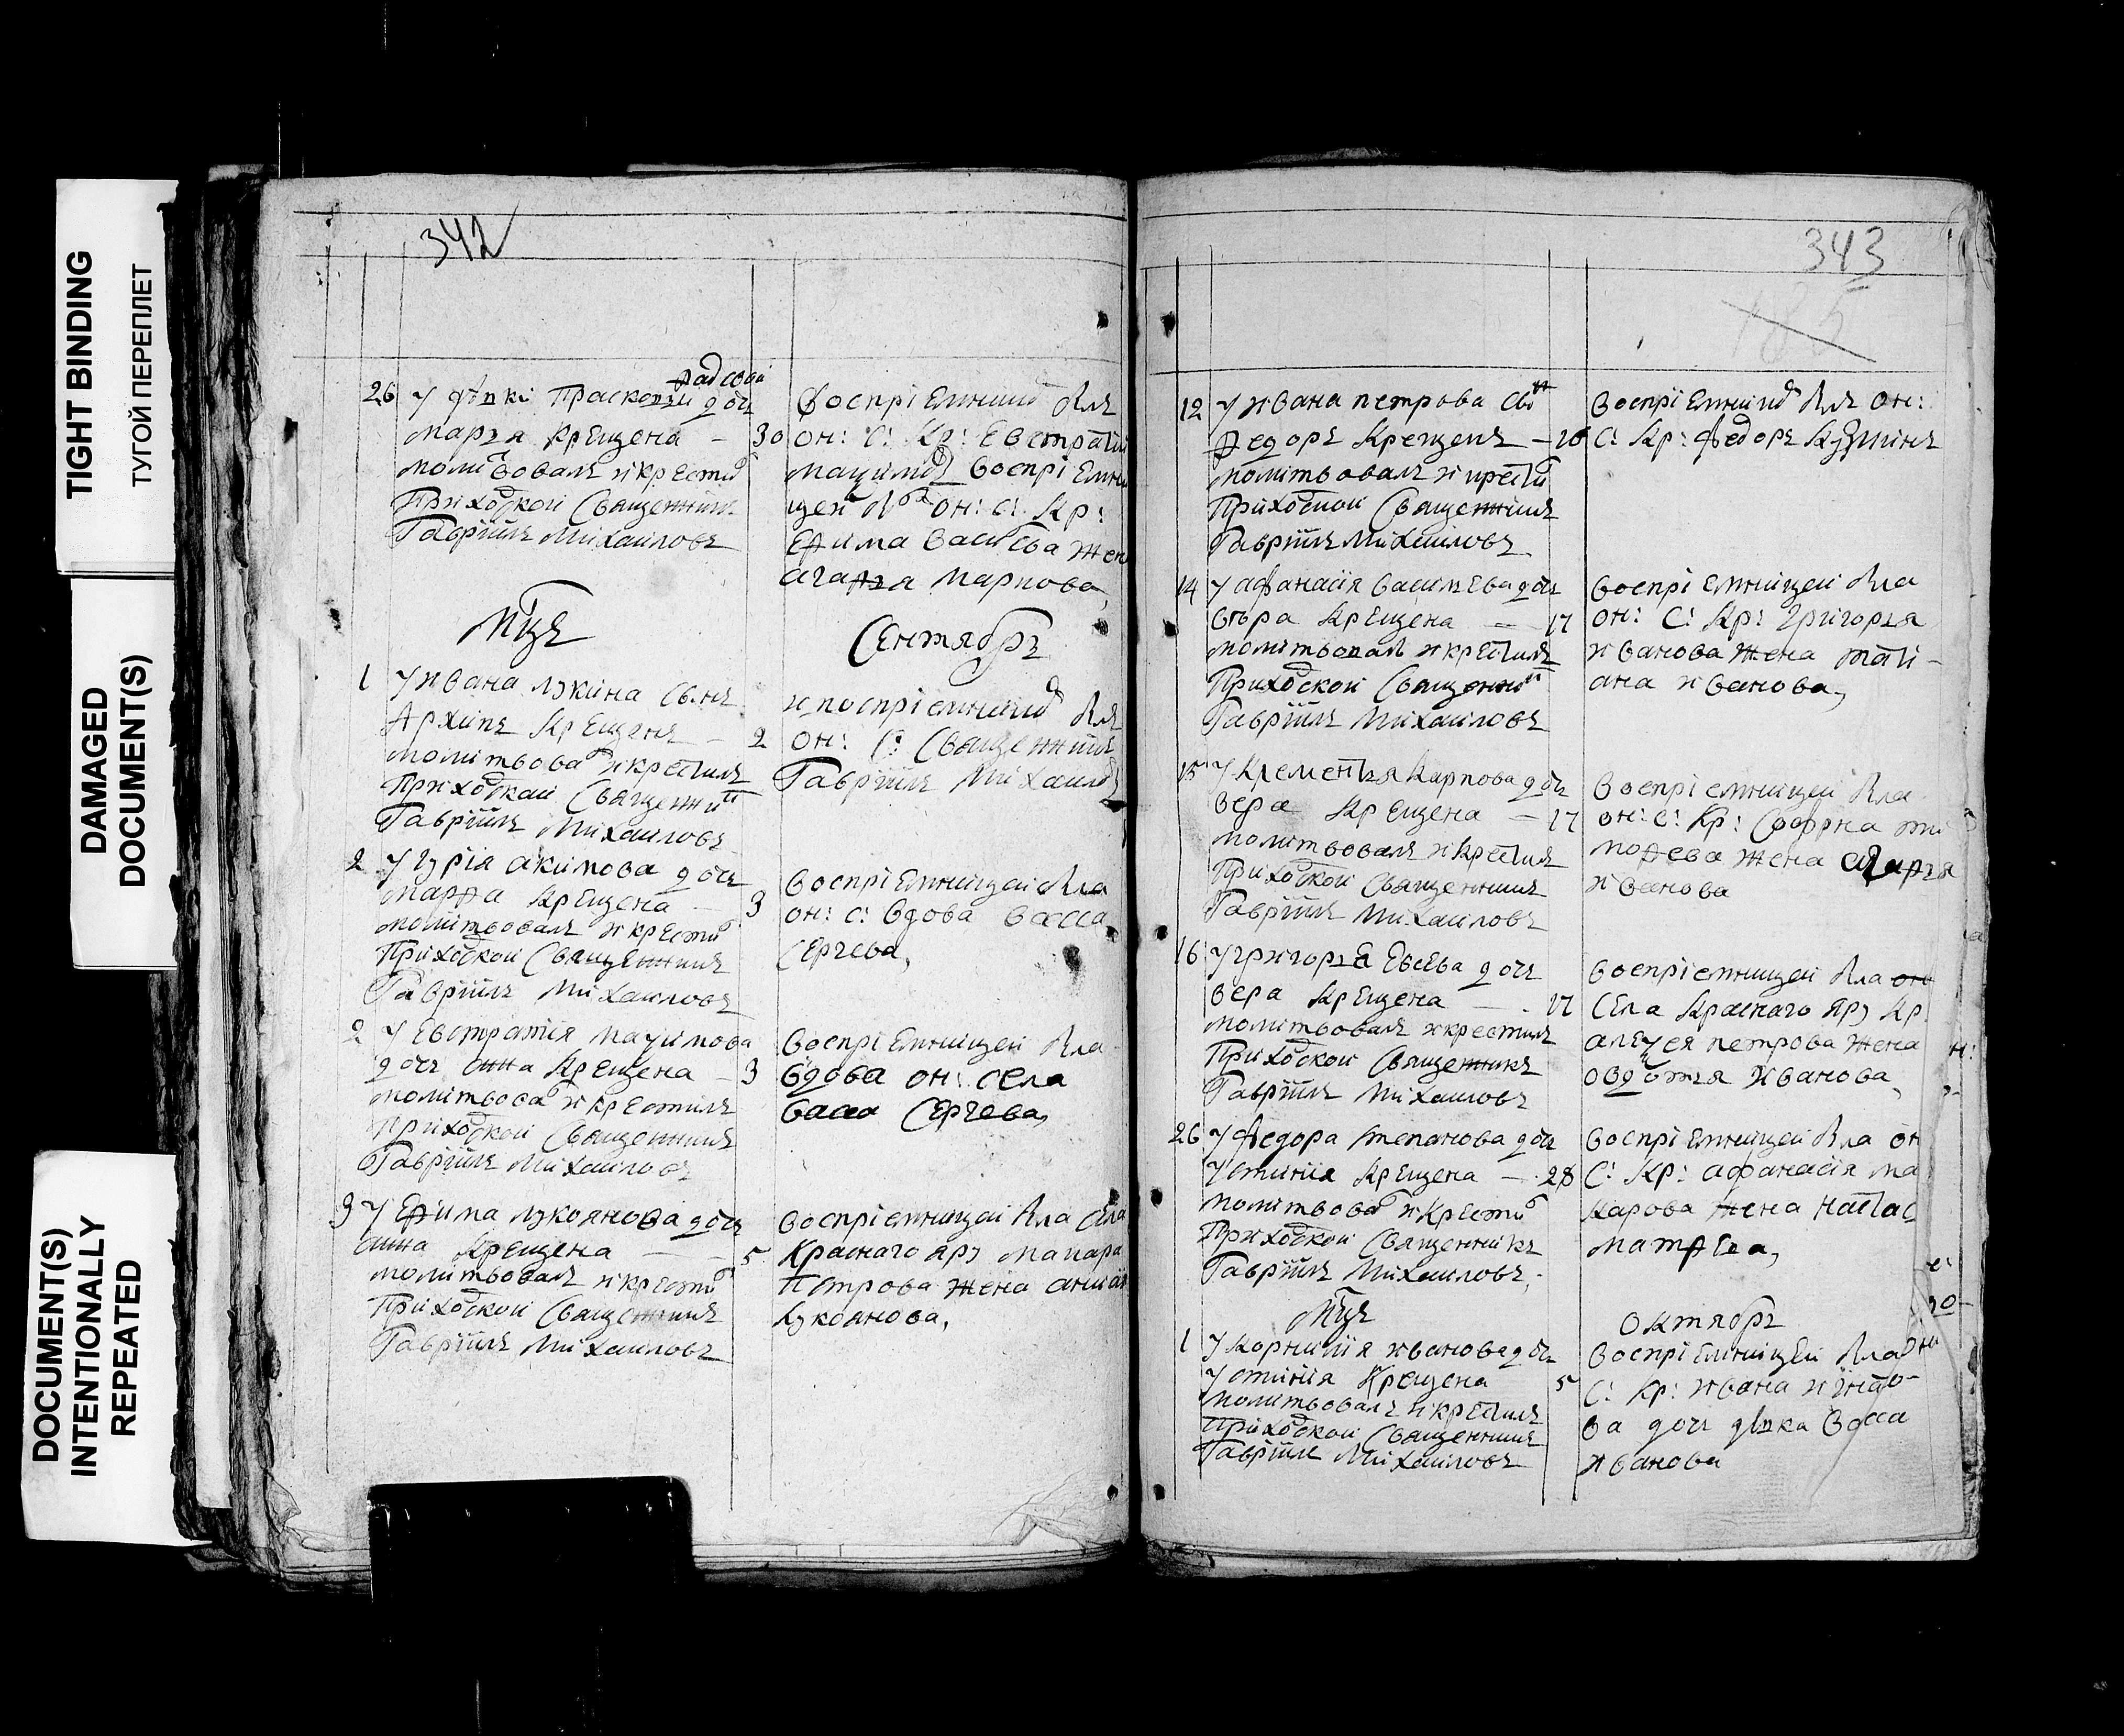 TIGHT BINDING
ТУГОЙ ПЕРЕПЛЕТ
DAMAGED
DOCUMENT(S)
DOCUMENT(S)
INTENTIONALLY
REPEATED
342
26 У дѣвки Прасковьи дочь
марѳа крещена — 30
молитвовалъ и крести
Приходской Священникъ
Гавріилъ Михаиловъ
воспріемником былъ
он: С: Кр: Евстратий
воспріемни
цей
он: С: Кр:
Ефима жен
агафья карпова,
Мцъ
Сентябрь
1 У ивана лукина сынъ
Архипъ Крещенъ — 2
молитвова и крестилъ
Приходской Священни
Гавріилъ Михаиловъ
он: С: Священникъ
Гавріилъ Михаило
2 У гурія акимова дочь
марфа крещена — 3
молитвовалъ и крести
Приходской Священникъ
Гавріилъ Михаиловъ
воспріемницей была
он: С: вдова васса
Сергева,
2 У Евстратія
дочь анна крещена — 3
молитвова и крестилъ
приходской Священникъ
Гавріилъ Михаиловъ
воспріемницей была
вдова он: села
васса Сергева,
3 У Ефима лукоянова дочь
анна крещена — 5
молитвовалъ и крести
Приходской Священникъ
Гавріилъ Михаиловъ
воспріемницей была села
Краснаго яру макара
Петрова жена
лукоянова,
343
185
12 У ивана петрова сы
Федоръ Крещенъ — 16
молитвовалъ и крести
Приходской Священникъ
Гавріилъ Михаиловъ
воспріемником былъ он:
С: Кр: федоръ кузминъ
14 У афанасія васильева дочь
вѣра крещена — 17
молитвовалъ и крестилъ
Приходской Священни
Гавріилъ Михаиловъ
воспріемницей была
он: С: Кр: григорья
иванова жена тати-
ана иванова,
15 У Крементья карпова дочь
вера крещена — 17
молитвовалъ и крестилъ
Приходской Священникъ
Гавріилъ Михаиловъ
воспріемницей была
он: С: Кр: софрна ти
мофева жена агафья
иванова
16 У григорья Евсева дочь
вера крещена — 17
молитвовалъ и крестилъ
Приходской Священникъ
Гавріилъ Михаиловъ
воспріемницей была
села Краснаго яру Кр
петрова жена
овдотья иванова,
26 У федора степанова дочь
устинія крещена — 28
молитвова и крести
Приходской Священникъ
Гавріилъ Михаиловъ,
воспріемницей была он
С: Кр: афанасія ма
карова жена настас
матфева,
Мцъ
октябрь
1 У корнилія иванова дочь
устинія Крещена 5
молитвовалъ и крестилъ
Приходской Священникъ
Гавріилъ Михаиловъ
воспріемницей была он
С: Кр: ивана игнато-
ва дочь дѣвка васса
иванова